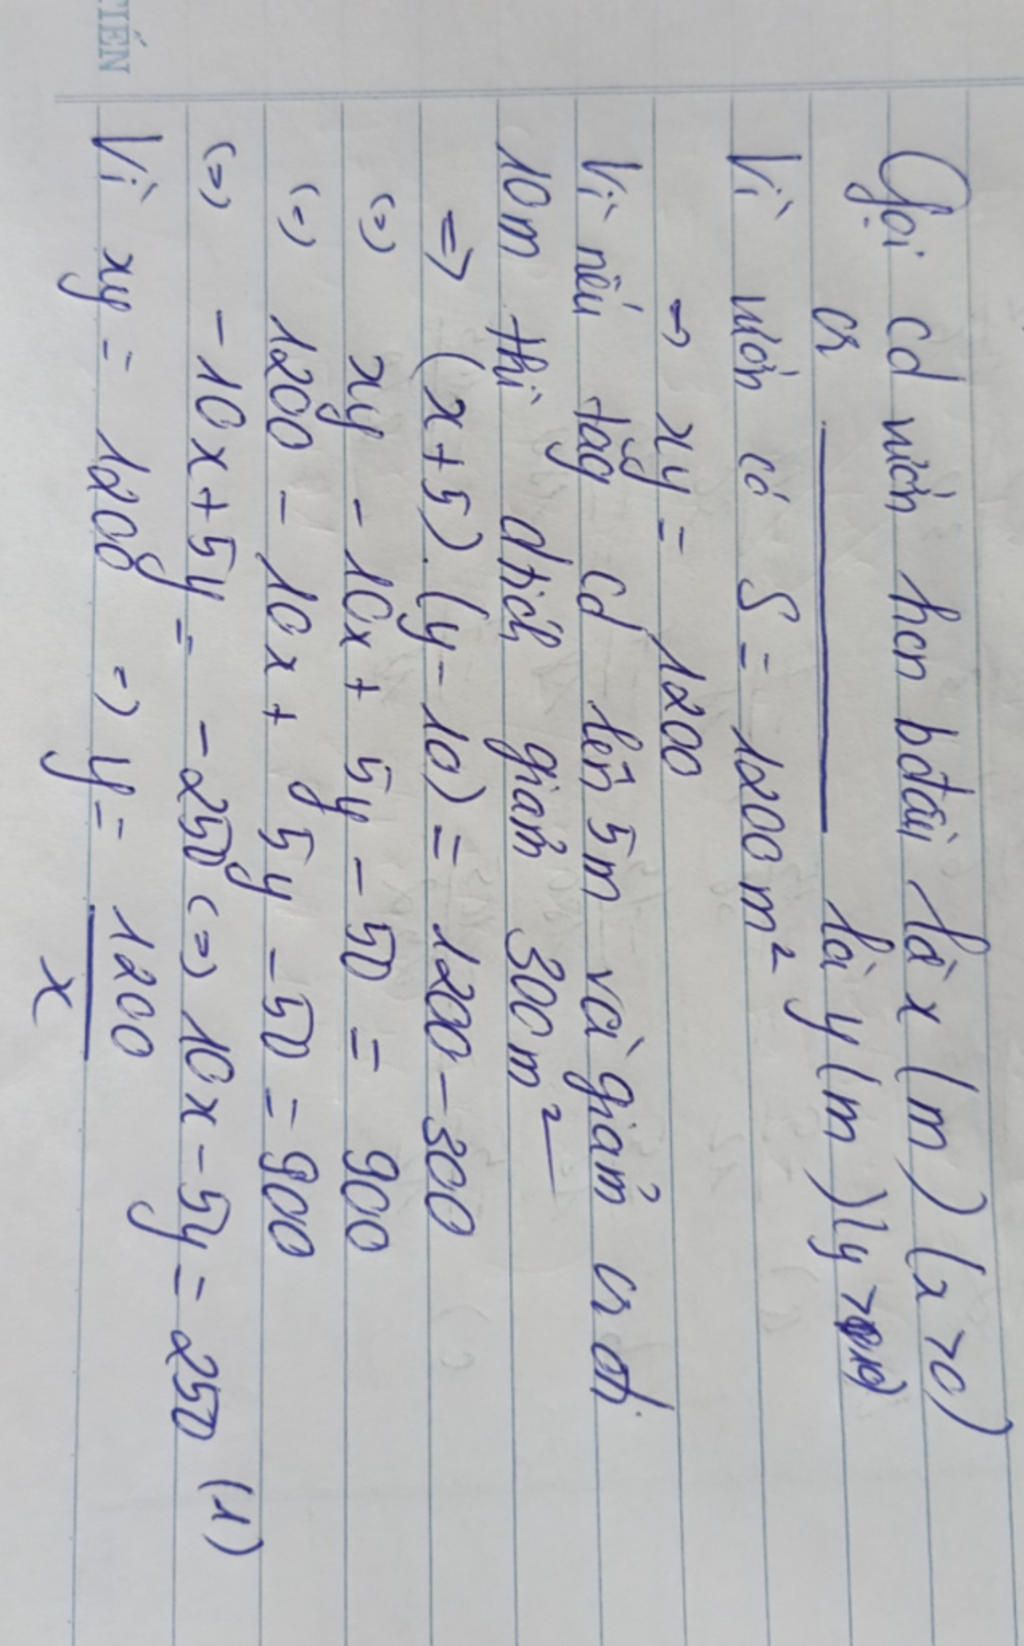 TIẾN
Gọi cd vườn hcn bđầu là x (m) (x>0)
cr ______ là y (m) (y>10)
Vì vườn có S = 1200m²
=> xy = 1200
Vì nếu tăg cd lên 5m và giảm cr đi
10m thì dtích giảm 300m²
=> (x+5).(y-10) = 1200-300
(=) xy - 10x + 5y - 50 = 900
(=) 1200 - 10x + 5y - 50 = 900
(=) -10x + 5y = -250 (=) 10x - 5y = 250 (1)
Vì xy = 1200 => y = 1200/x